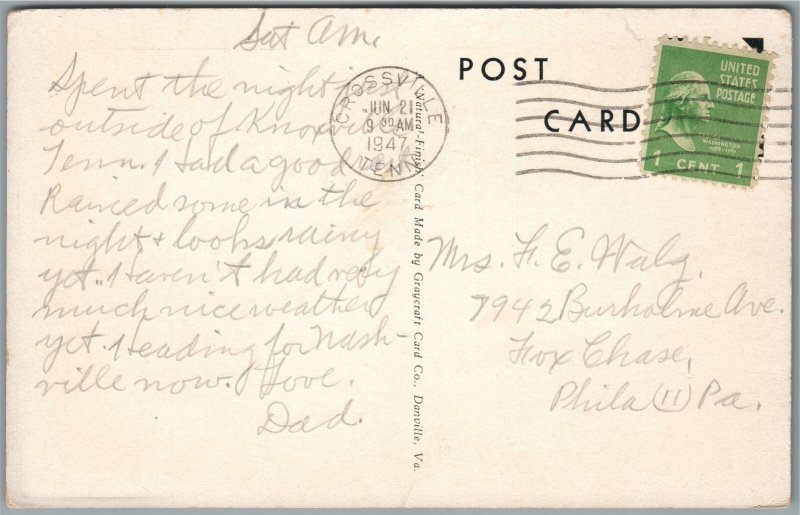 Sat Am.
Spent the night just
outside of Knoxville
Tenn. Had a good rest
Rained some in the
night & looks rainy
yet. Haven't had very
much nice weather
yet. Heading for Nash-
ville now. Love.
Dad.
Natural-Finish Card Made by Graycraft Card Co., Danville, Va.
POST
CARD
CROSSVILLE
JUN 21
9 30 AM
1947
TENN.
UNITED
STATES
POSTAGE
WASHINGTON
1 CENT 1
Mrs. F. E. Walz.
7942 Burholme Ave.
Fox Chase,
Phila (11) Pa.